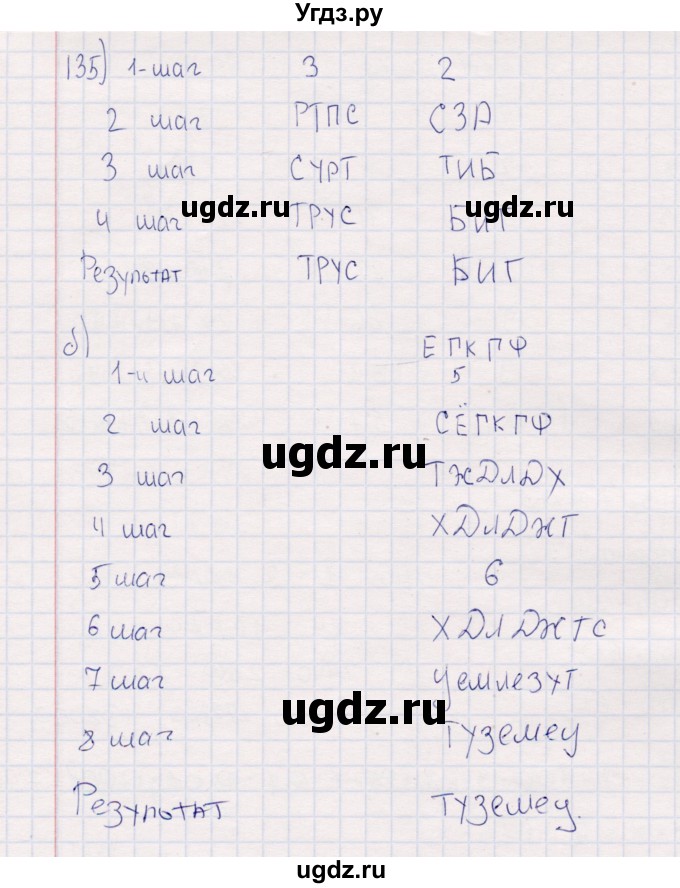 Угдз.ру
135) 1-шаг 3 2
2 шаг РТПС СЗА
3 шаг СУРТ ТИБ
ugdz.ru ugdz.ru
4 шаг ТРУС БИГ
Результат ТРУС БИГ
б) ЕГКГФ
1-й шаг 5
2 шаг СЁГКГФ
ugdz.ru
3 шаг ТЖДЛДХ
4 шаг ХДЛДЖТ
5 шаг 6
6 шаг ХДЛДЖТС
7 шаг Цемлезут
ugdz.ru
8 шаг Туземец
Результат Туземец.
ugdz.ru